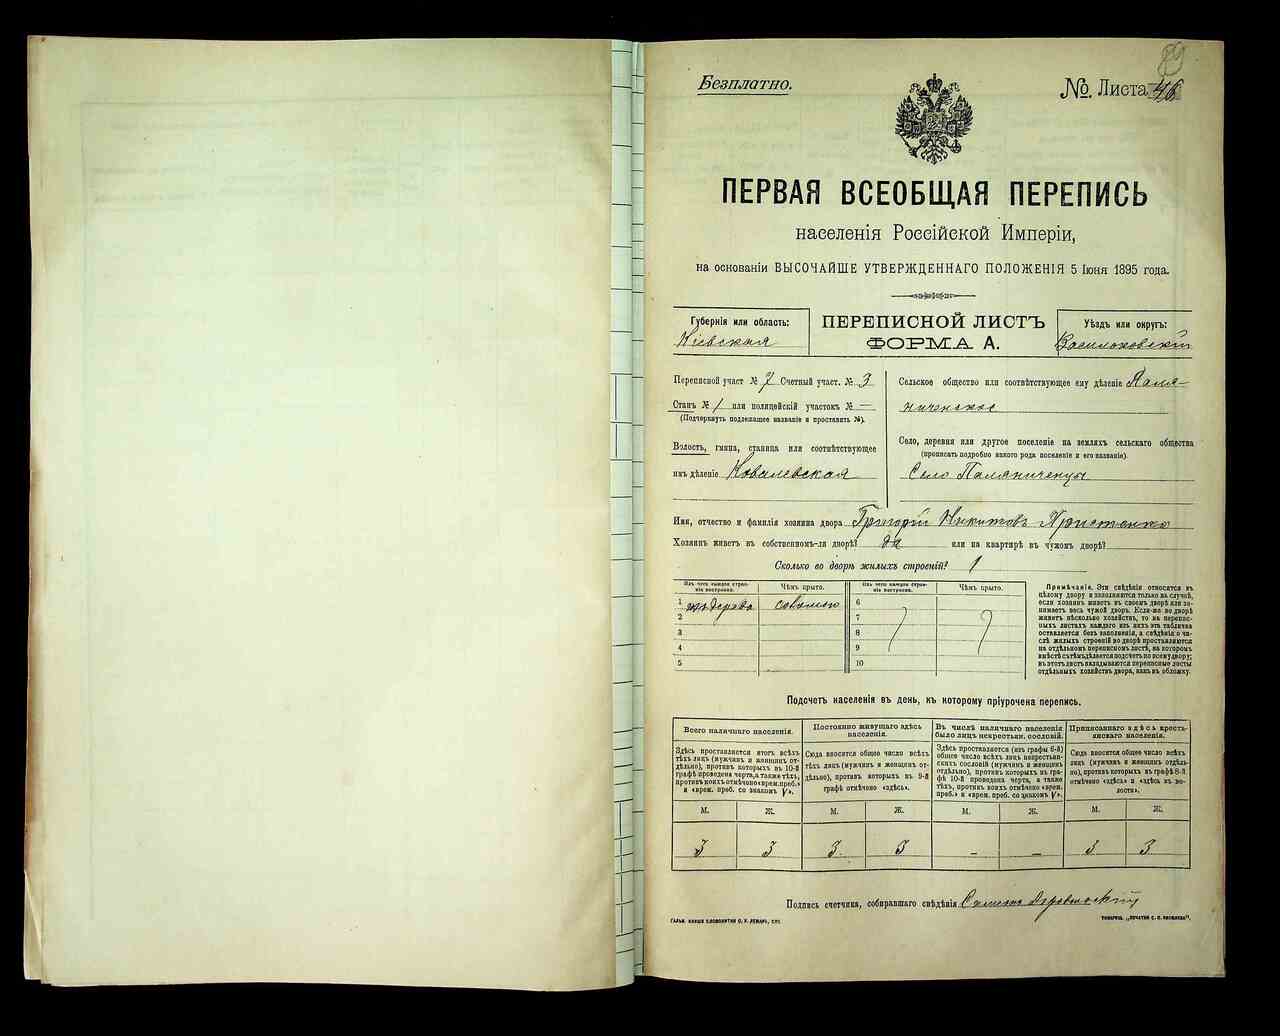 Безплатно.
№ Листа 46
ПЕРВАЯ ВСЕОБЩАЯ ПЕРЕПИСЬ
населенія Россійской Имперіи,
на основаніи ВЫСОЧАЙШЕ УТВЕРЖДЕННАГО ПОЛОЖЕНІЯ 5 Іюня 1895 года.
Губернія или область:
Кіевская
ПЕРЕПИСНОЙ ЛИСТЪ
ФОРМА А.
Уѣздъ или округъ:
Васильковскій
Переписной участ № 7 Счетный участ. № 3
Станъ № 1 или полицейскій участокъ № —
(Подчеркнуть подлежащее названіе и проставить №).
Волость, гмина, станица или соотвѣтствующее
имъ дѣленіе Ковалевская
Сельское общество или соотвѣтствующее ему дѣленіе Паля-
ниченское
Село, деревня или другое поселеніе на земляхъ сельскаго общества
(прописать подробно какого рода поселеніе и его названіе).
Село Паляниченцы
Имя, отчество и фамилія хозяина двора Григорій Никитовъ
Хозяинъ живетъ въ собственномъ-ли дворѣ? да или на квартирѣ въ чужомъ дворѣ?
Сколько во дворѣ жилыхъ строеній? 1
Изъ чего каждое строе-
ніе построено.
Чѣмъ крыто.
Изъ чего каждое строе-
ніе построено.
Чѣмъ крыто.
1 изъ дерева соломою
2
3
4
5
6
7
8
9
10
Примѣчаніе. Эти свѣдѣнія относятся къ
цѣлому двору и заполняются только въ случаѣ,
если хозяинъ живетъ въ своемъ дворѣ или за-
нимаетъ весь чужой дворъ. Если-же во дворѣ
живетъ нѣсколько хозяйствъ, то на перепис-
ныхъ листахъ каждаго изъ нихъ эта табличка
оставляется безъ заполненія, а свѣдѣнія о чи-
слѣ жилыхъ строеній во дворѣ проставляются
на отдѣльномъ переписномъ листѣ, на которомъ
вмѣстѣ съ тѣмъ дѣлается подсчетъ по всему двору;
въ этотъ листъ вкладываются переписные листы
отдѣльныхъ хозяйствъ двора, какъ въ обложку.
Подсчетъ населенія въ день, къ которому пріурочена перепись.
Всего наличнаго населенія.
Здѣсь проставляется итогъ всѣхъ
тѣхъ лицъ (мужчинъ и женщинъ от-
дѣльно), противъ которыхъ въ 10-й
графѣ проведена черта, а также тѣхъ,
противъ коихъ отмѣчено «врем. преб.»
и «врем. преб. со знакомъ V».
Постоянно живущаго здѣсь
населенія.
Сюда вносится общее число всѣхъ
тѣхъ лицъ (мужчинъ и женщинъ от-
дѣльно), противъ которыхъ въ 9-й
графѣ отмѣчено «здѣсь».
Въ числѣ наличнаго населенія
было лицъ некрестьян. сословій.
Здѣсь проставляется (изъ графы 6-й)
общее число всѣхъ лицъ некрестьян-
скихъ сословій (мужчинъ и женщинъ
отдѣльно), противъ которыхъ въ гра-
фѣ 10-й проведена черта, а также
тѣхъ, противъ коихъ отмѣчено «врем.
преб.» и «врем. преб. со знакомъ V».
Приписаннаго здѣсь кресть-
янскаго населенія.
Сюда вносится общее число всѣхъ
лицъ (мужчинъ и женщинъ отдѣль-
но), противъ которыхъ въ графѣ 8-й
отмѣчено «здѣсь» и «здѣсь въ во-
лости».
М. Ж. М. Ж. М. Ж. М. Ж.
3 3 3 3 – – 3 3
Подпись счетчика, собиравшаго свѣдѣнія